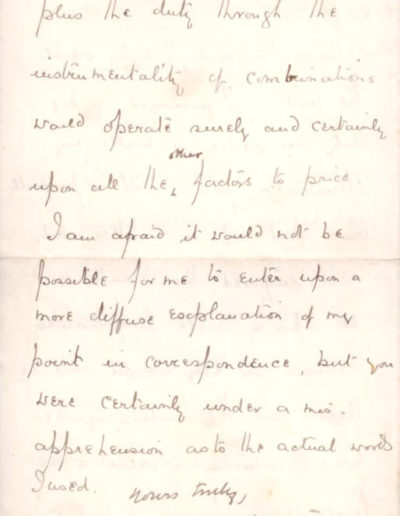 plus the duty through the
instrumentality of combinations
would operate surely and certainly
other
upon all the ‸ factors to price.
I am afraid it would not be
possible for me to enter upon a
more diffuse explanation of my
point in correspondence, but you
were certainly under a mis-
apprehension as to the actual words
I used.
Yours truly,